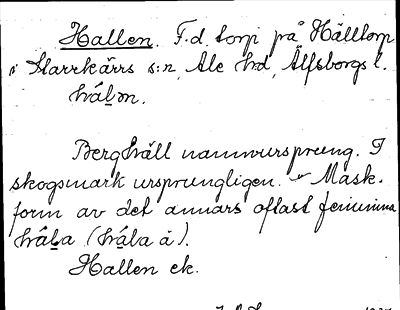 Hallen. F.d. torp på Hälltorp
i Starrkärrs s:n, Ale hd, Älfsborgs l.
hálən.
Berghäll namnursprung. I
skogsmark ursprungligen. Mask.
form av det annars oftast feminina
hála (hála å).
Hallen ek.